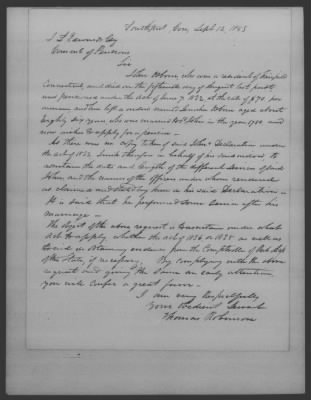 Southport Con, Sept 12, 1843
J. L. Edwards Esq
Com of Pensions
Sir
John Osborn, who was a resident of Fairfield
Connecticut and died on the fifteenth day of August last past
was pensioned under the act of June 7, 1832 at the rate of $70 per
annum and has left a widow named Osborn aged about
Eighty six years who was married to John in the year 1780 and
now wishes to apply for a pension -
As there was no copy taken of said John's Declaration under
the act of 1832 I wish therefore in behalf of his said widow to
ascertain the date and length of the different services of said
John, and the names of the officers under whom rendered
as claimed and stated by him in his said Declaration -
It is said that he performed some service after his
marriage -
The object of the above request is to ascertain under what
act to apply whether the act of 1836 or 1838 as well as
to aid in obtaining evidence from the Comptroller of
of this State, if necessary. By complying with the above
request and giving the same an early attention
you will confer a great favor -
I am very Respectfully
Your Obedient Servant
Thomas Robinson